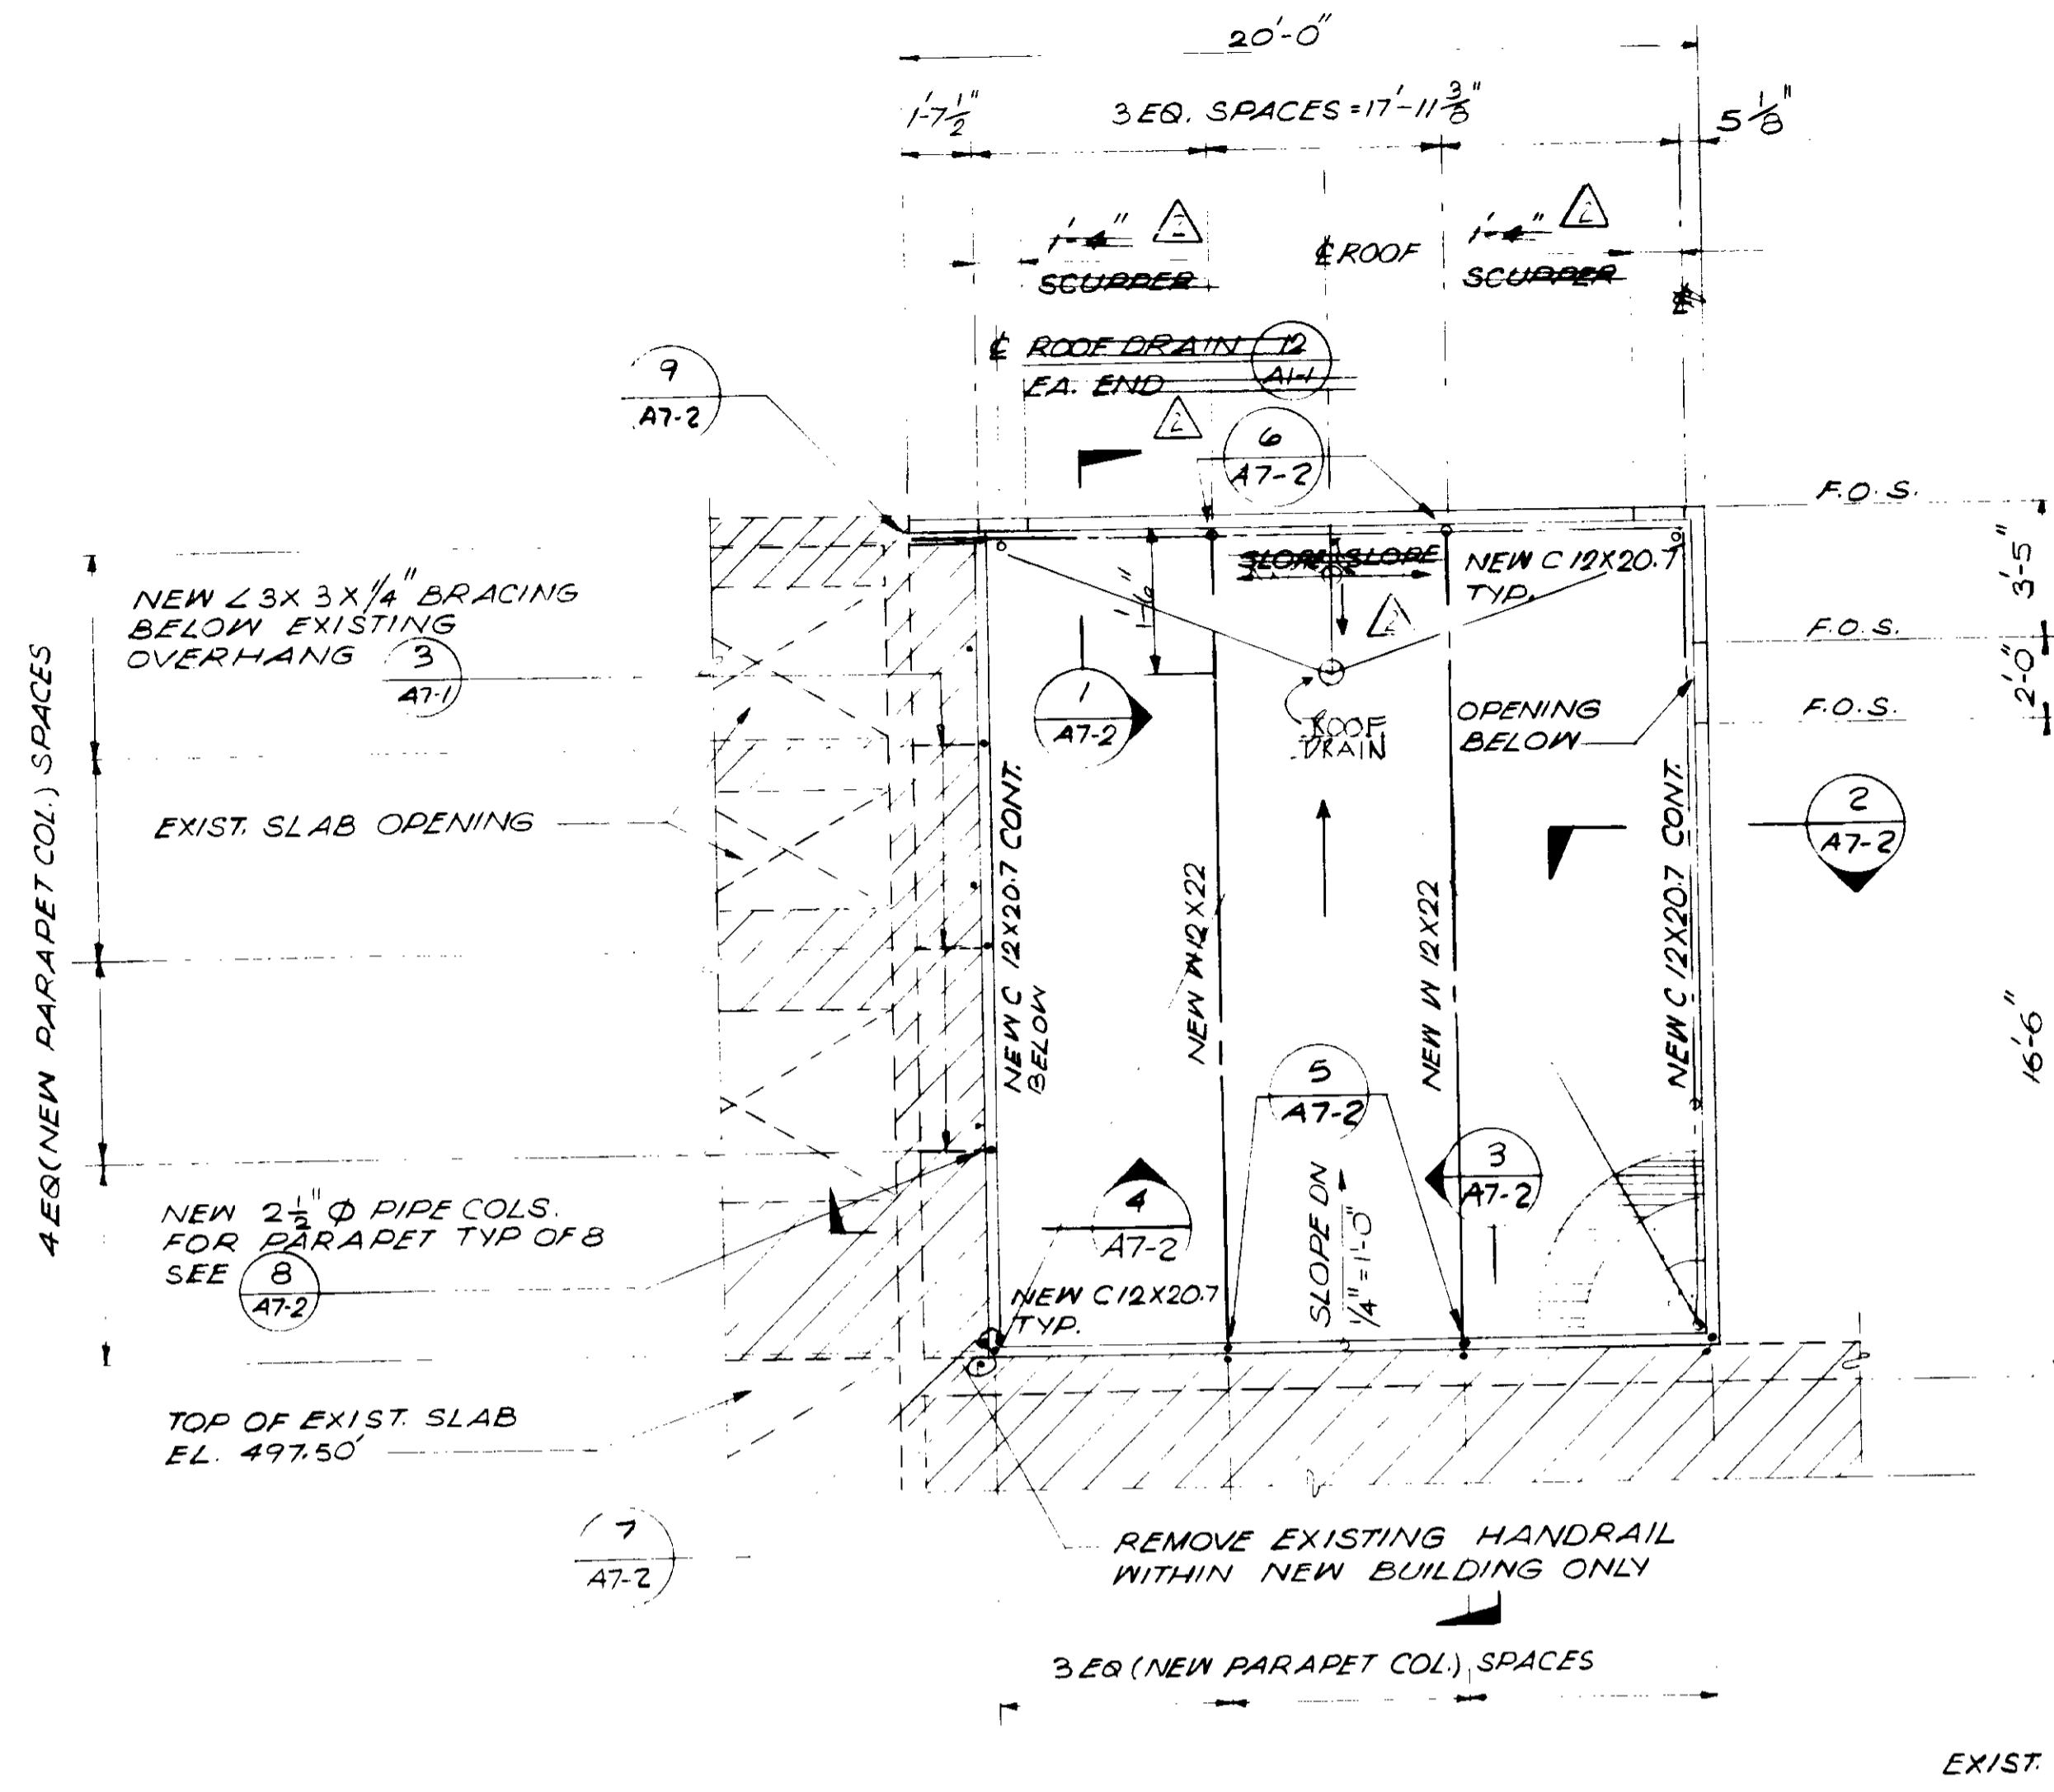 20'-0"
1'-7 1/2"
3 EQ. SPACES = 17'-11 3/8"
5 1/8"
1'-4"
2
SCUPPER
℄ ROOF
1'-4"
2
SCUPPER
℄ ROOF DRAIN
EA. END
12
A1-1
2
9
A7-2
6
A7-2
F.O.S.
3'-5"
F.O.S.
2'-0"
F.O.S.
16'-6"
NEW ∠ 3 X 3 X 1/4" BRACING
BELOW EXISTING
OVERHANG
3
A7-1
SLOPE SLOPE
NEW C 12X20.7
TYP.
1'-6"
2
1
A7-2
ROOF
DRAIN
OPENING
BELOW
2
A7-2
4 EQ (NEW PARAPET COL.) SPACES
EXIST. SLAB OPENING
NEW C 12X20.7 CONT.
BELOW
NEW W 12X22
NEW W 12X22
NEW C 12X20.7 CONT.
5
A7-2
3
A7-2
4
A7-2
SLOPE DN
1/4" = 1'-0"
NEW 2 1/2" Ø PIPE COLS.
FOR PARAPET TYP OF 8
SEE
8
A7-2
NEW C 12X20.7
TYP.
TOP OF EXIST. SLAB
EL. 497.50'
7
A7-2
REMOVE EXISTING HANDRAIL
WITHIN NEW BUILDING ONLY
3 EQ (NEW PARAPET COL.) SPACES
EXIST.